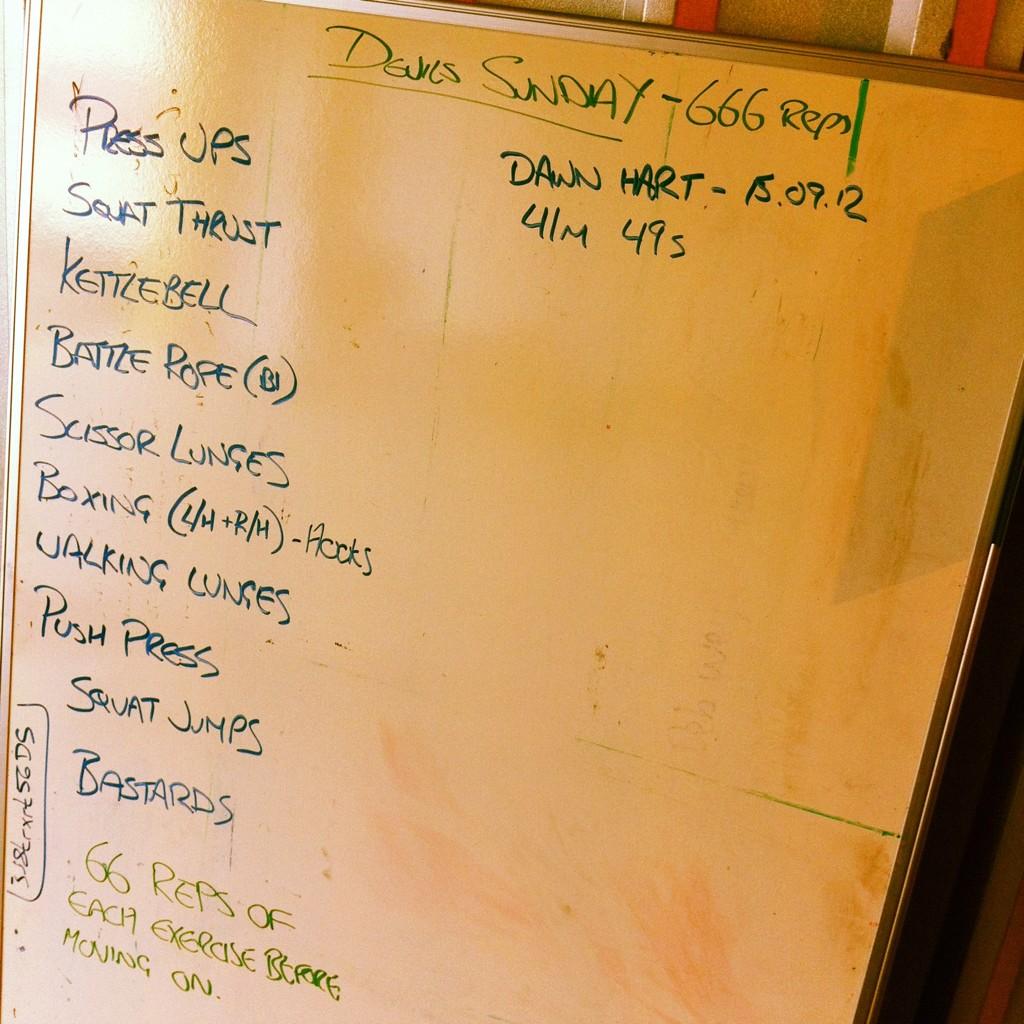 DEVILS SUNDAY - 666 Reps
DAWN HART - 15.09.12
41M 49s
PRESS UPS
SQUAT THRUST
KETTLEBELL
BATTLE ROPE (BI)
SCISSOR LUNGES
BOXING (L/H + R/H) - HOOKS
WALKING LUNGES
PUSH PRESS
SQUAT JUMPS
BASTARDS
66 REPS OF
EACH EXERCISE BEFORE
MOVING ON.